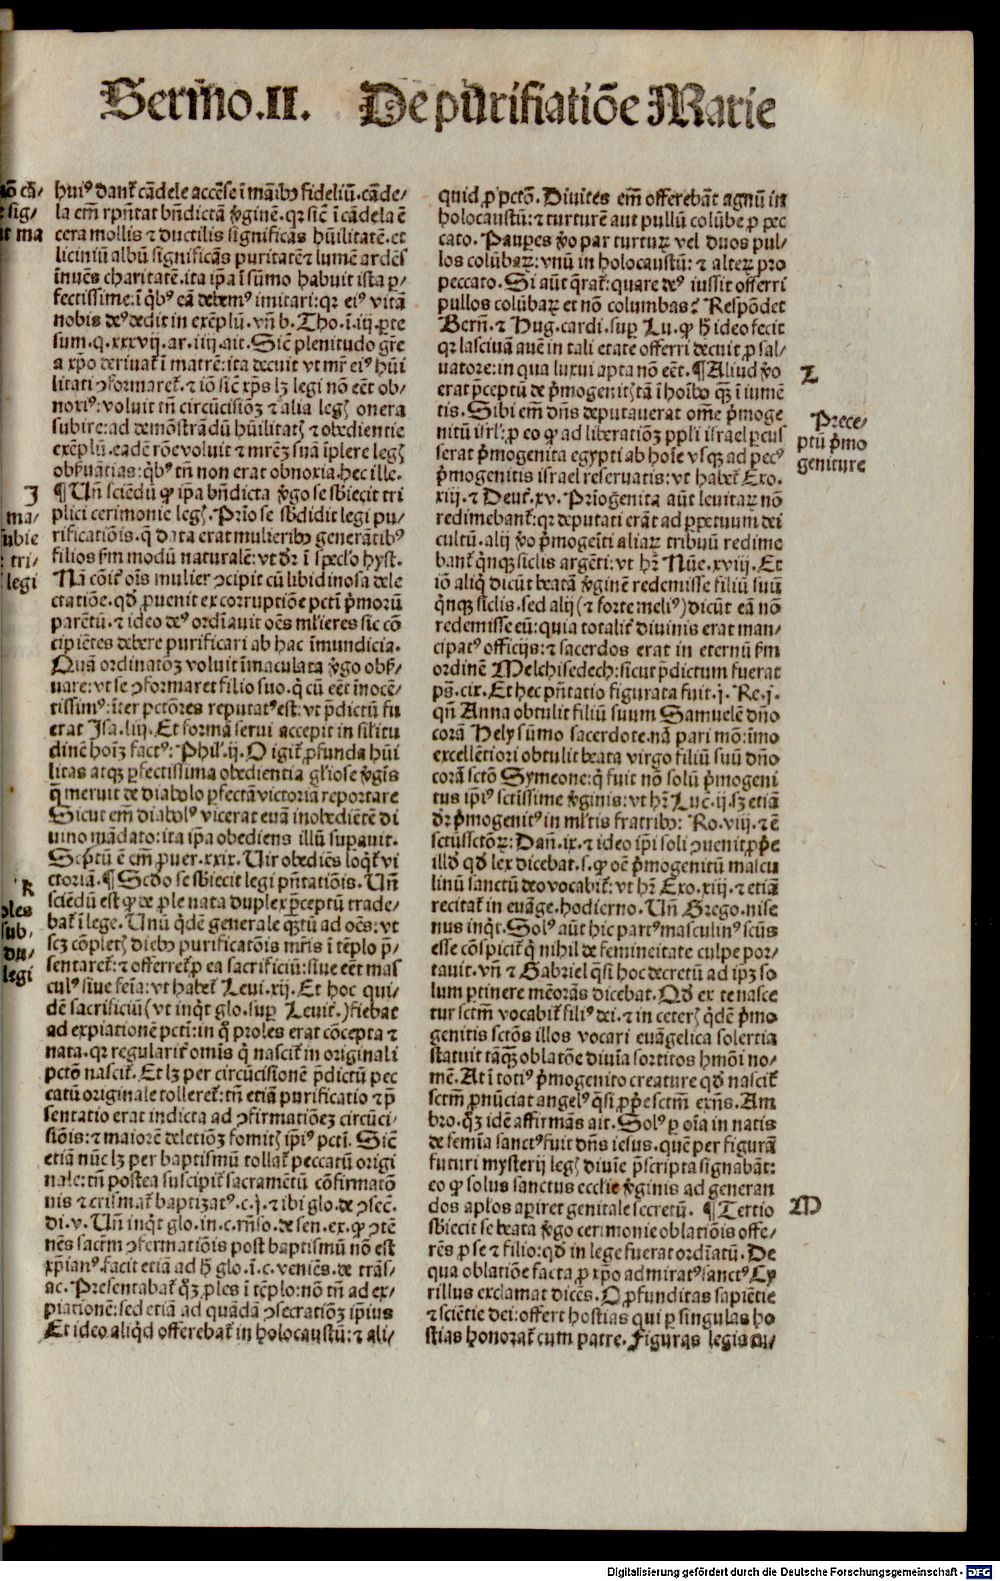 Sermo.II. De purifiatiōe Marie
huiꝰ dant᷑ cādele accēse ī māibꝰ fideliū. cāde⸗
la em̄ rp̄ntat bn̄dictā v̄ginē. qr sic̄ ī cādela ē
cera mollis ⁊ ductilis significās hūilitatē. et
liciniū albū significās puritatē ⁊ lumē ardēs
īnuēs charitatē. ita ip̄a ī sūmo habuit ista ꝑ⸗
fectissime: ī qͥbꝰ eā debemꝰ imitari: qr eiꝰ vitā
nobis deꝰ dedit in exēplū. vn̄ b. Tho. ī. iij. ꝑte
sum. q. xxxvij. ar. iiij. ait. Sic̄ plenitudo gr̄e
a xp̄o deriuat᷑ ī matrē: ita decuit vt mr̄ eiꝰ hūi
litati ꝯformaret᷑. ⁊ iō sic̄ xp̄s lꝫ legi nō eēt ob⸗
noxiꝰ: voluit tn̄ circūcisiōꝫ ⁊ alia legꝭ onera
subire: ad demōstrādū hūilitatꝭ ⁊ obedientie
exēplū. eadē rōe voluit ⁊ mr̄eꝫ suā īplere legꝭ
obẜuātias: qͥbꝰ tn̄ non erat obnoxia. hec ille.
¶ Un̄ sciēdū ꝙ ip̄a bn̄dicta v̄go se sb̄iecit tri
plici cerimonie legꝭ. Prīo se sb̄didit legi pu⸗
rificatiōis. q̄ data erat mulieribꝰ generātibꝰ
filios ẜm modū naturalē: vt dr̄ ī speclo hyst.
Nā cōit᷑ oīs mulier ꝯcipit cū libidinosa dele
ctatiōe. qd̄ ꝓuenit ex corruptiōe pcti p̄morū
parētū. ⁊ ideo deꝰ ordīauit oēs ml̄ieres sic cō
cipiētes debere purificari ab hac īmundicia.
Quā ordinatōꝫ voluit īmaculata v̄go obẜ⸗
uare: vt se ꝯformaret filio suo. qͥ cū eēt īnocē⸗
tissimꝰ: īter pctōres reputatꝰ est: vt p̄dictū fu
erat Isa. liij. Et formā serui accepit in sil̄itu
dinē hoīꝫ factꝰ: Phil̓. ij. O igit᷑ ꝓfunda hūi
litas atqꝫ ꝑfectissima obedientia gl̓iose v̄gīs
q̄ meruit de diabolo ꝑfectā victoriā reportare
Sicut em̄ diabolꝰ vicerat euā inobediētē di
uino mādato: ita ip̄a obediens illū suꝑauit.
Scptū ē em̄ ꝓuer. xxix. Uir obediēs loqͭ᷑ vi
ctoriā. ¶ Scd̄o se sb̄iecit legi pn̄tatiōis. Un̄
sciēdū est ꝙ de ꝓle nata duplex p̄ceptū trade⸗
bat᷑ ī lege. Unū qͥdē generale qͣꝫtū ad oēs: vt
scꝫ cōpletꝭ diebꝰ purificatōis mr̄is ī tēplo p̄⸗
sentaret᷑: ⁊ offerret᷑ ꝓ ea sacrificiū: siue eēt mas
culꝰ siue fēīa: vt habet᷑ Leui. xij. Et hoc qui⸗
dē sacrificiū (vt inqͭ glo. suꝑ Leuit᷑.) fiebat
ad expiationē pcti: in qͦ proles erat cōcepta ⁊
nata. qr regularit᷑ omīs qͥ nascit᷑ in originali
pctō nascit᷑. Et lꝫ per circūcisionē p̄dictū pec
catū originale tolleret᷑: tn̄ etiā purificatio ⁊ p̄
sentatio erat indicta ad ꝯfirmatiōeꝫ circūci⸗
siōis: ⁊ maiorē deletiōꝫ fomitꝭ ip̄iꝰ pcti. Sic̄
etiā nūc lꝫ per baptismū tollat᷑ peccatū origi
nale: tn̄ postea suscipit᷑ sacramētū cōfirmatō
nis ⁊ crismat᷑ baptizatꝰ. c. j. ⁊ ibi glo. de ꝯsec̄.
di. v. Un̄ inqͭ glo. in. c. rn̄so. de sen. ex. ꝙ ꝯtē
nēs sacrm̄ ꝯfermatiōis post baptismū nō est
xp̄ianꝰ. facit etiā ad h̄ glo. ī. c. veniēs. de trās⸗
ac. Presentabat᷑ g̊ꝫ ꝓles ī tēplo: nō tn̄ ad ex⸗
piationē: sed etiā ad quādā ꝯsecratiōꝫ ip̄ius
Et ideo aliqͥd offerebat᷑ in holocaustū: ⁊ ali⸗
quid ꝓ pctō. Diuites em̄ offerebāt agnū in
holocaustū: ⁊ turturē aut pullū colūbe ꝓ pec
cato. Pauꝑes v̄o par turturꝝ vel duos pul⸗
los colūbaꝝ: vnū in holocaustū: ⁊ alterꝝ pro
peccato. Si aūt q̄rat᷑: quare deꝰ iussit offerri
pullos colūbaꝝ et nō columbas? Respōdet
Bern̄. ⁊ Hug. cardi. suꝑ Lu. ꝙ h̄ ideo fecit
qr lasciuā auē in tali etate offerri decuit ꝓ sal⸗
uatore: in qua luxui apta nō eēt. ¶ Aliud v̄o
erat p̄ceptū de p̄mogenitꝭ tā ī hoībꝰ qͣꝫ ī iumē
tis. Sibi em̄ dn̄s deputauerat om̄e p̄moge
nitū isrl̓: ꝓ eo ꝙ ad liberatiōꝫ ppli israel ꝑcus
serat p̄mogenita egypti ab hoīe vsqꝫ ad pecꝰ
p̄mogenitis israel reseruatis: vt habet᷑ Exo.
xiij. ⁊ Deut᷑. xv. Prīogenita aūt leuitaꝝ nō
redimebant᷑: qr deputati erāt ad ꝑpetuum dei
cultū. alij v̄o p̄mogeīti aliaꝝ tribuū redime
bant᷑ qͥnqꝫ siclis argēti: vt hr̄ Nūe. xviij. Et
iō aliqͥ dicūt beatā v̄ginē redemisse filiū suū
qͥnqꝫ siclis. sed alij (⁊ forte meliꝰ) dicūt eā nō
redemisse eū: quia totalit᷑ diuinis erat man⸗
cipatꝰ officijs: ⁊ sacerdos erat in eternū ẜm
ordinē Melchisedech: sicut p̄dictum fuerat
ps̄. cix. Et hec pn̄tatio figurata fuit. j. Re. j.
qn̄ Anna obtulit filiū suum Samuelē dn̄o
corā Hely sūmo sacerdote. nā pari mō: īmo
excellētiori obtulit beata virgo filiū suū dn̄o
corā sctō Symeone: qͥ fuit nō solū p̄mogeni
tus ip̄iꝰ sctissime v̄ginis: vt hr̄ Luc. ij. sꝫ etiā
dr̄ p̄mogenitꝰ in ml̓tis fratribꝰ: Ro. viij. ⁊ ē
sctūssctōꝝ: Dan̄. ix. ⁊ ideo ipi soli ꝯuenit ꝓp̄e
illd̓ qd̓ lex dicebat. s. ꝙ oē p̄mogenitū mascu
linū sanctū deo vocabit᷑: vt hr̄ Exo. xiij. ⁊ etiā
recitat᷑ in euāge. hodierno. Un̄ Grego. nise
nus inqͭ. Solꝰ aūt hic partꝰ masculinꝰ scūs
esse cōspicit᷑ qͥ nihil de femineitate culpe por⸗
tauit. vn̄ ⁊ Gabriel qͣsi hoc decretū ad ip̄ꝫ so
lum ꝑtinere mēorās dicebat. Qd̓ ex te nasce
tur sctm̄ vocabit᷑ filiꝰ dei. ⁊ in ceterꝭ qͥdē p̄mo
genitis sctōs illos vocari euāgelica solertia
statuit tāqͣꝫ oblatōe diuīa sortitos hmōi no⸗
mē. At ī totiꝰ p̄mogenito creature qd̓ nascit᷑
sctm̄ ꝓnūciat angelꝰ qͣsi ꝓp̄e sctm̄ exn̄s. Am
bro. qͦꝫ idē affirmās ait. Solꝰ ꝑ oīa in natis
de femīa sanctꝰ fuit dn̄s iesus. quē per figurā
futuri mysterij legꝭ diuīe p̄scripta signabāt:
eo ꝙ solus sanctus eccl̓ie v̄ginis ad generan
dos apl̓os aꝑiret genitale secretū. ¶ Tertio
sb̄iecit se beata v̄go cerimonie oblatiōis offe⸗
rēs ꝓ se ⁊ filio: qd̓ in lege fuerat ordīatū. De
qua oblatiōe facta ꝓ xp̄o admiratꝰ sanctꝰ Cy
rillus exclamat dicēs. O ꝓfunditas sapiētie
⁊ sciētie dei: offert hostias qui ꝑ singulas ho
stias honorat᷑ cum patre. Figuras legis cu⸗
L
Prece⸗
ptū p̄mo
geniture
M
I
ma⸗
ubie
tri⸗
legi
K
ples
sub⸗
du⸗
legi
Digitalisierung gefördert durch die Deutsche Forschungsgemeinschaft - DFG